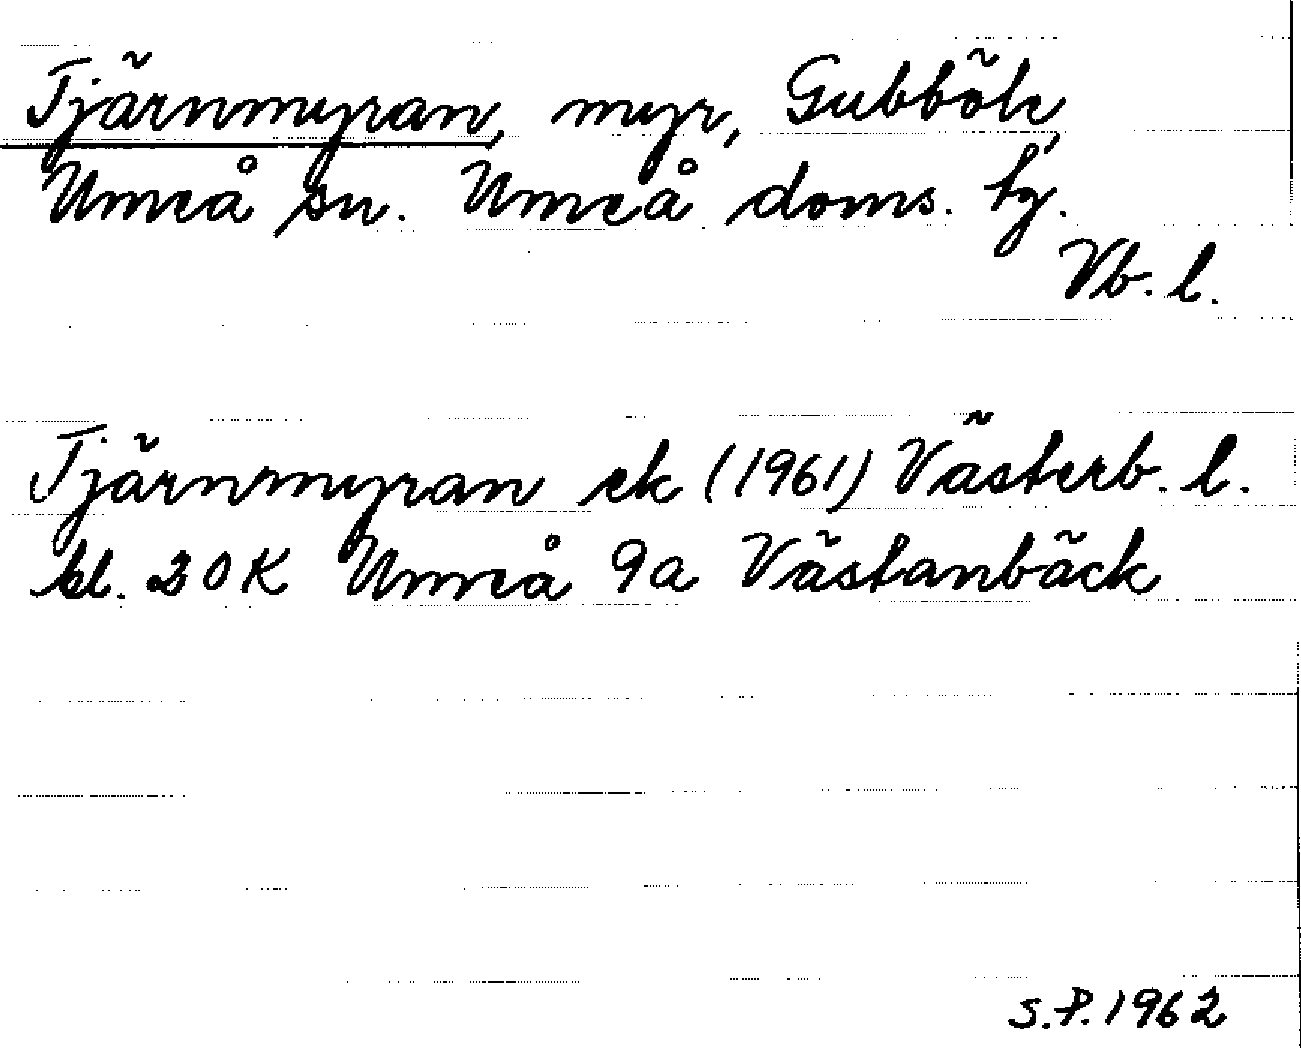 Tjärnmyran, myr, Gubböle,
Umeå sn. Umeå doms. tg.
Vb. l.
Tjärnmyran ek (1961) Västerb. l.
bl. 20K Umeå 9a Västanbäck
S.P. 1962